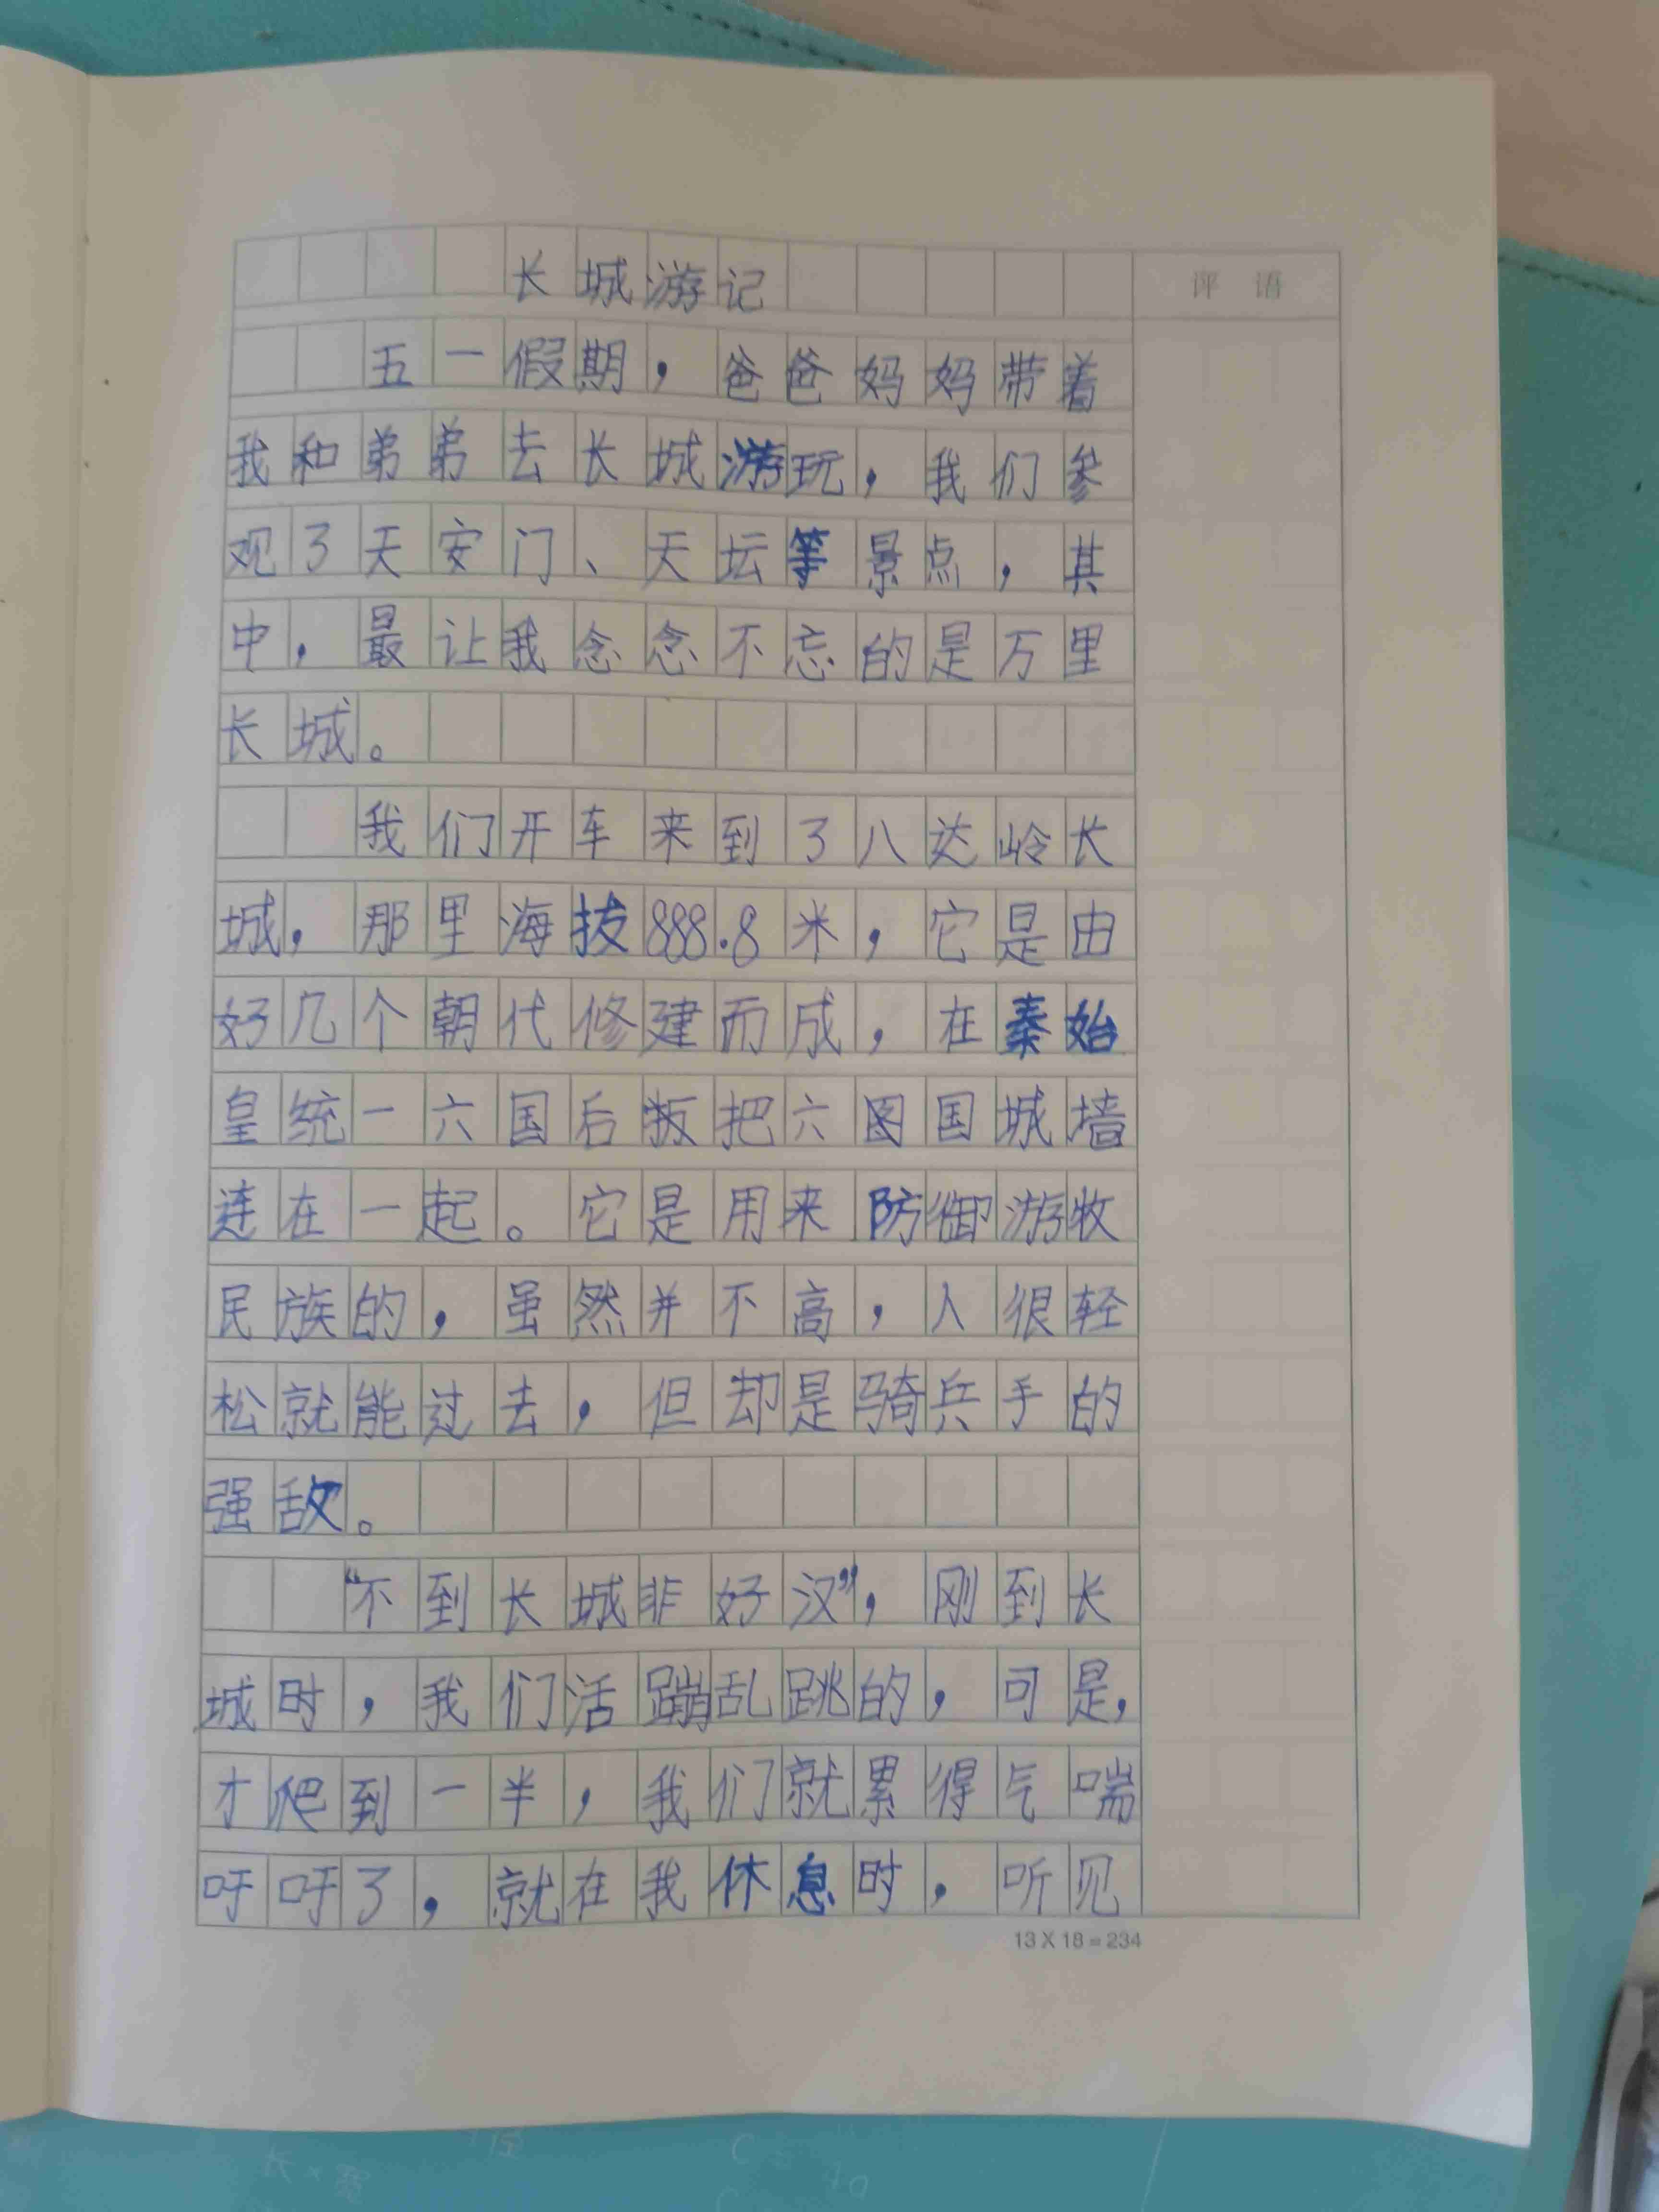 长城游记
评语
五一假期，爸爸妈妈带着
我和弟弟去长城游玩，我们参
观了天安门、天坛等景点，其
中，最让我念念不忘的是万里
长城。
我们开车来到了八达岭长
城，那里海拔888.8米，它是由
好几个朝代修建而成，在秦始
皇统一六国后把六国城墙
连在一起。它是用来防御游牧
民族的，虽然并不高，人很轻
松就能过去，但却是骑兵手的
强敌。
“不到长城非好汉”，刚到长
城时，我们活蹦乱跳的，可是，
才爬到一半，我们就累得气喘
吁吁了，就在我休息时，听见
13 X 18 = 234